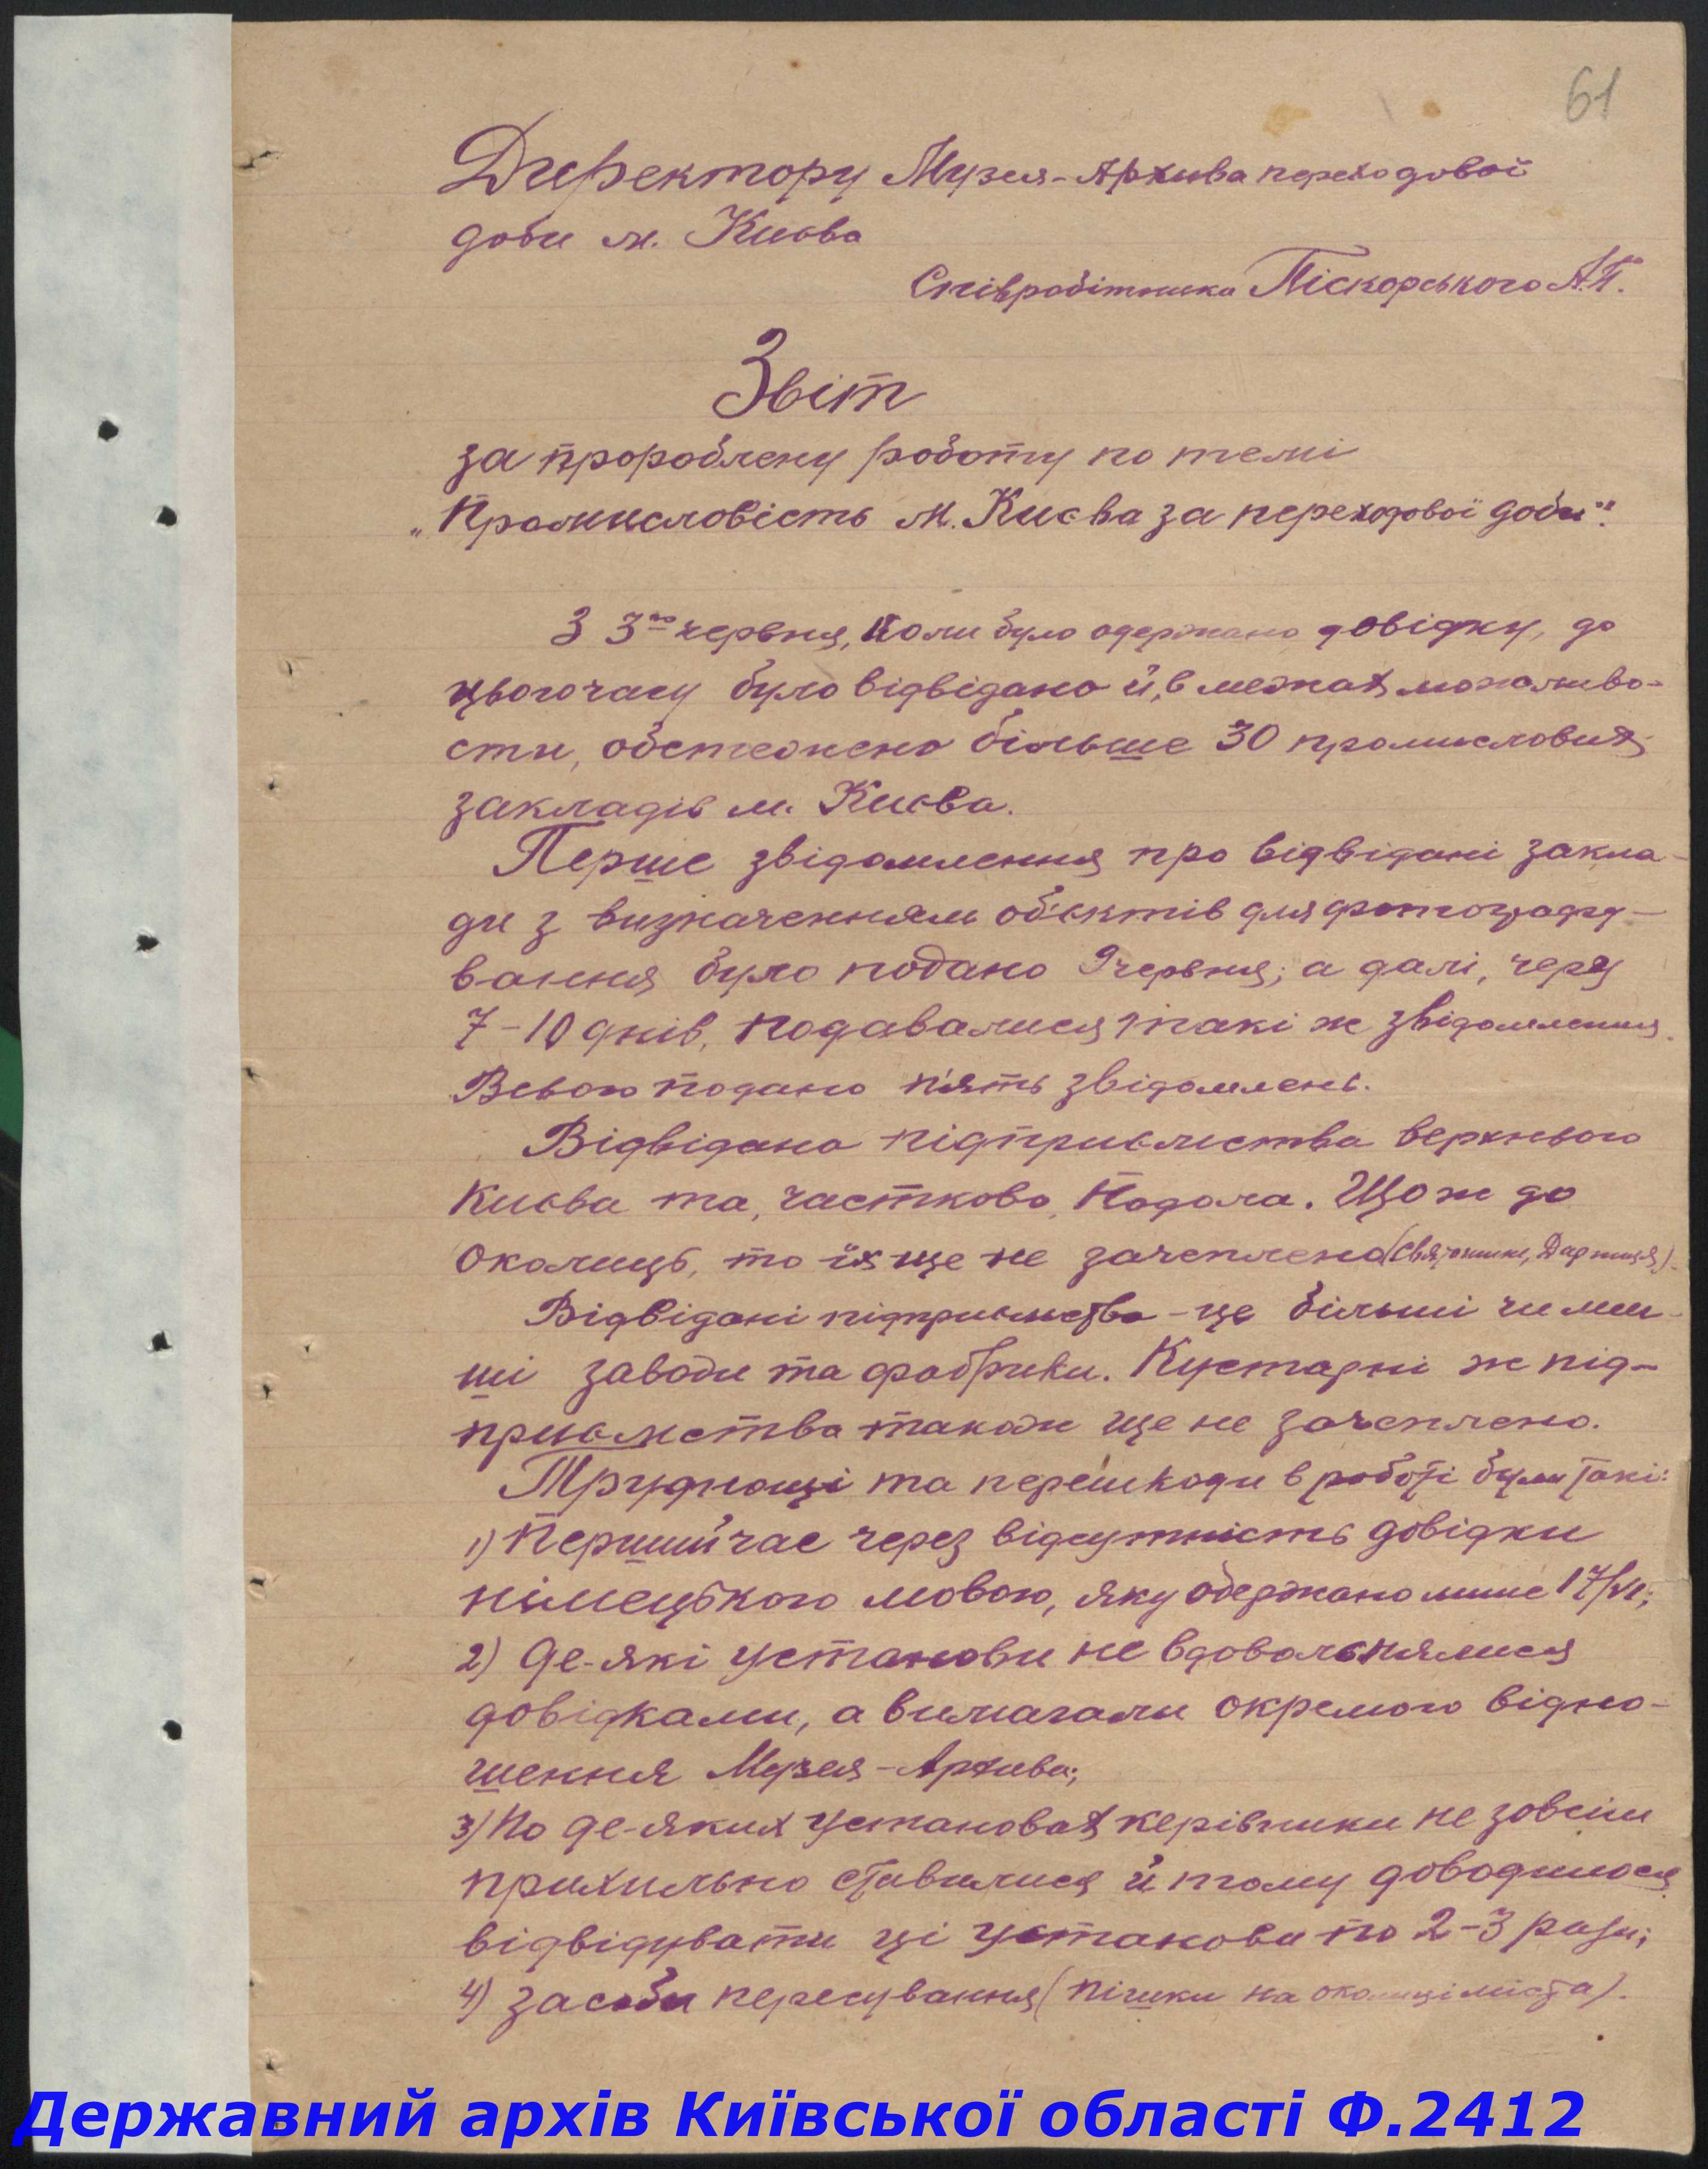 61
Директору Музея-Архива переходової
доби м. Києва
Співробітника Піскорського А.П.
Звіт
за пророблену роботу по темі
„Промисловість м. Києва за переходової доби".
З 3го червня, коли було одержано довідку, до
цього часу було відвідано й, в межах можливо-
сти, обстежено більше 30 промислових
закладів м. Києва.
Перше звідомлення про відвідані закла-
ди з визначенням об'єктів для фотографу-
вання було подано 9 червня; а далі, через
7-10 днів, подавалися такі ж звідомлення.
Всього подано п'ять звідомлень.
Відвідано підприємства верхнього
Києва та, частково, Подола. Що ж до
околиць, то їх ще не зачеплено (Святошин, Дарниця).
Відвідані підприємства - це більші чи мен-
ші заводи та фабрики. Кустарні ж під-
приємства також ще не зачеплено.
Труднощі та перешкоди в роботі були такі:
1) Перший час через відсутність довідки
німецького мовою, яку одержано лише 17/VI;
2) Де-які установи не вдовольнялися
довідками, а вимагали окремого відно-
шення Музея-Архива;
3) По де-яких установах керівники не зовсім
прихильно ставилися й тому доводилося
відвідувати ці установи по 2-3 рази;
4) засоби пересування (пішки на околиці міста).
Державний архів Київської області Ф.2412